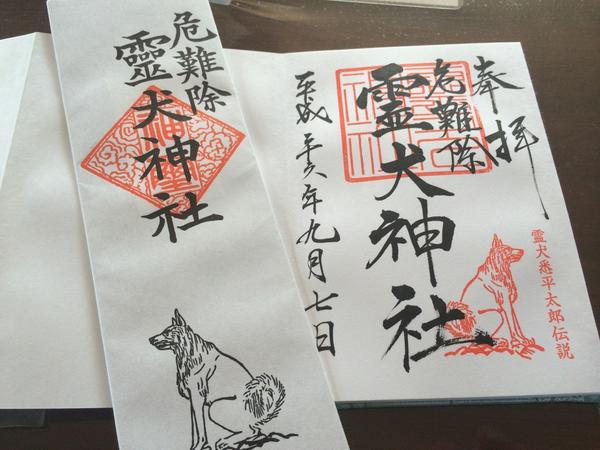 危難除
靈犬神社
奉拝
危難除
霊犬神社
平成二十六年九月七日
霊犬悉平太郎伝説